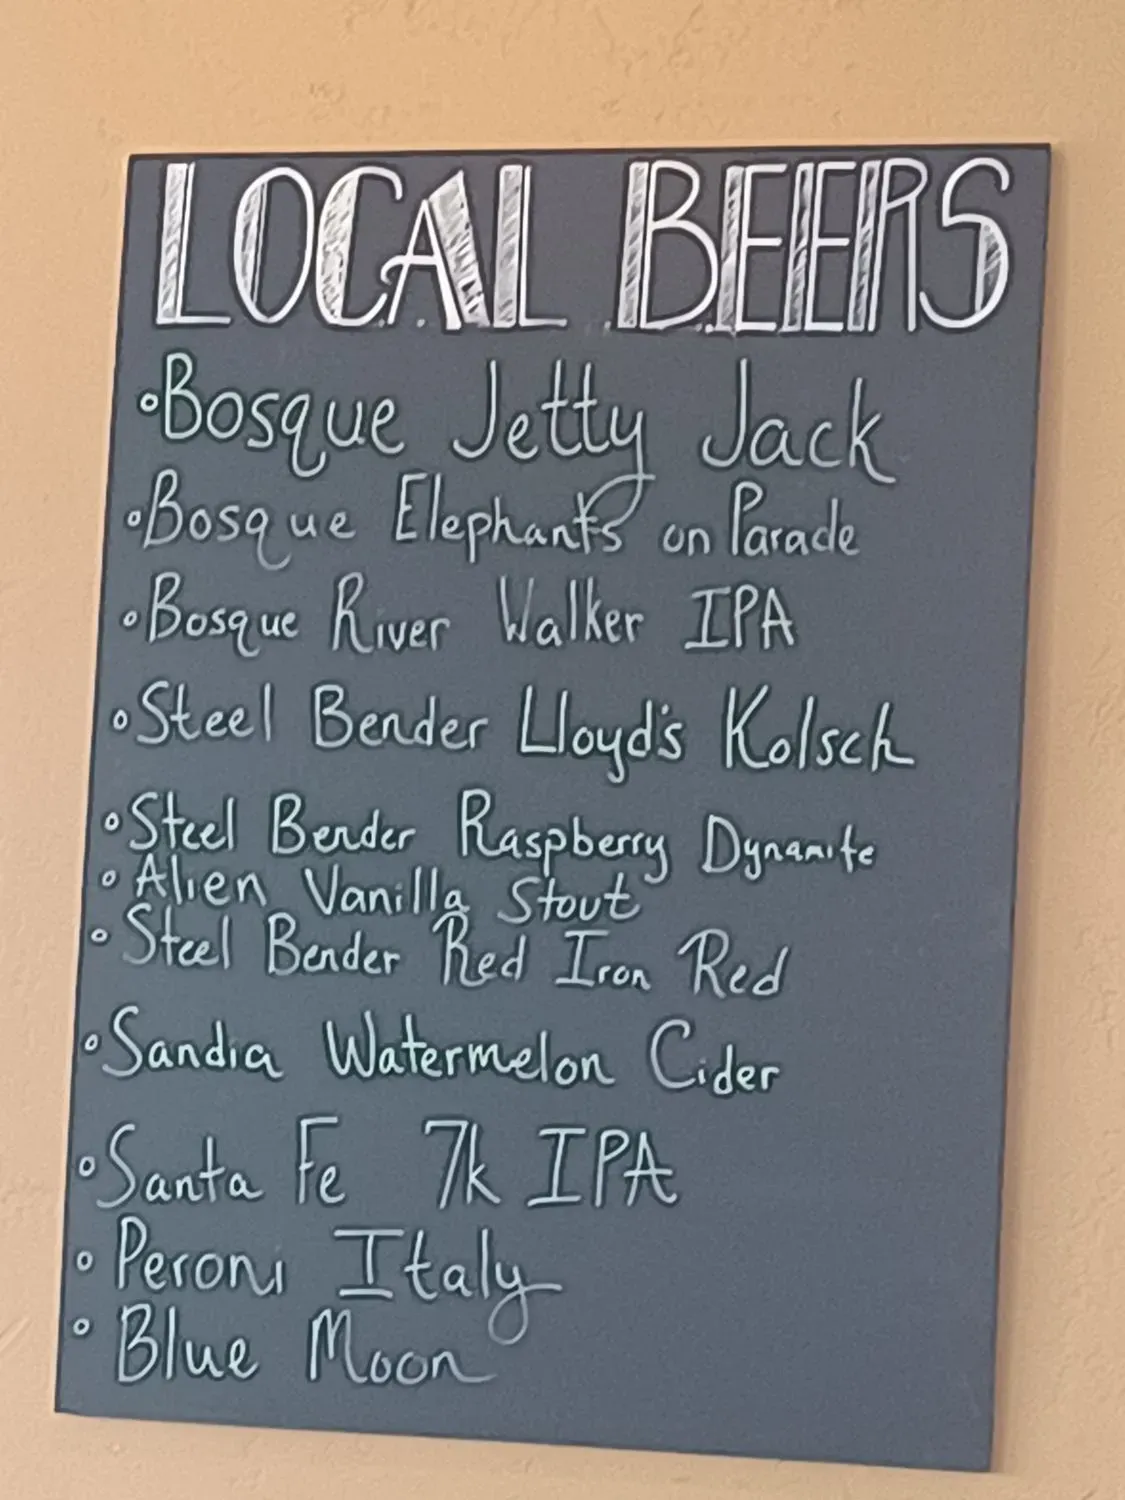 LOCAL BEERS
◦Bosque Jetty Jack
◦Bosque Elephants on Parade
◦Bosque River Walker IPA
◦Steel Bender Lloyd's Kolsch
◦Steel Bender Raspberry Dynamite
◦Alien Vanilla Stout
◦Steel Bender Red Iron Red
◦Sandia Watermelon Cider
◦Santa Fe 7k IPA
◦Peroni Italy
◦Blue Moon